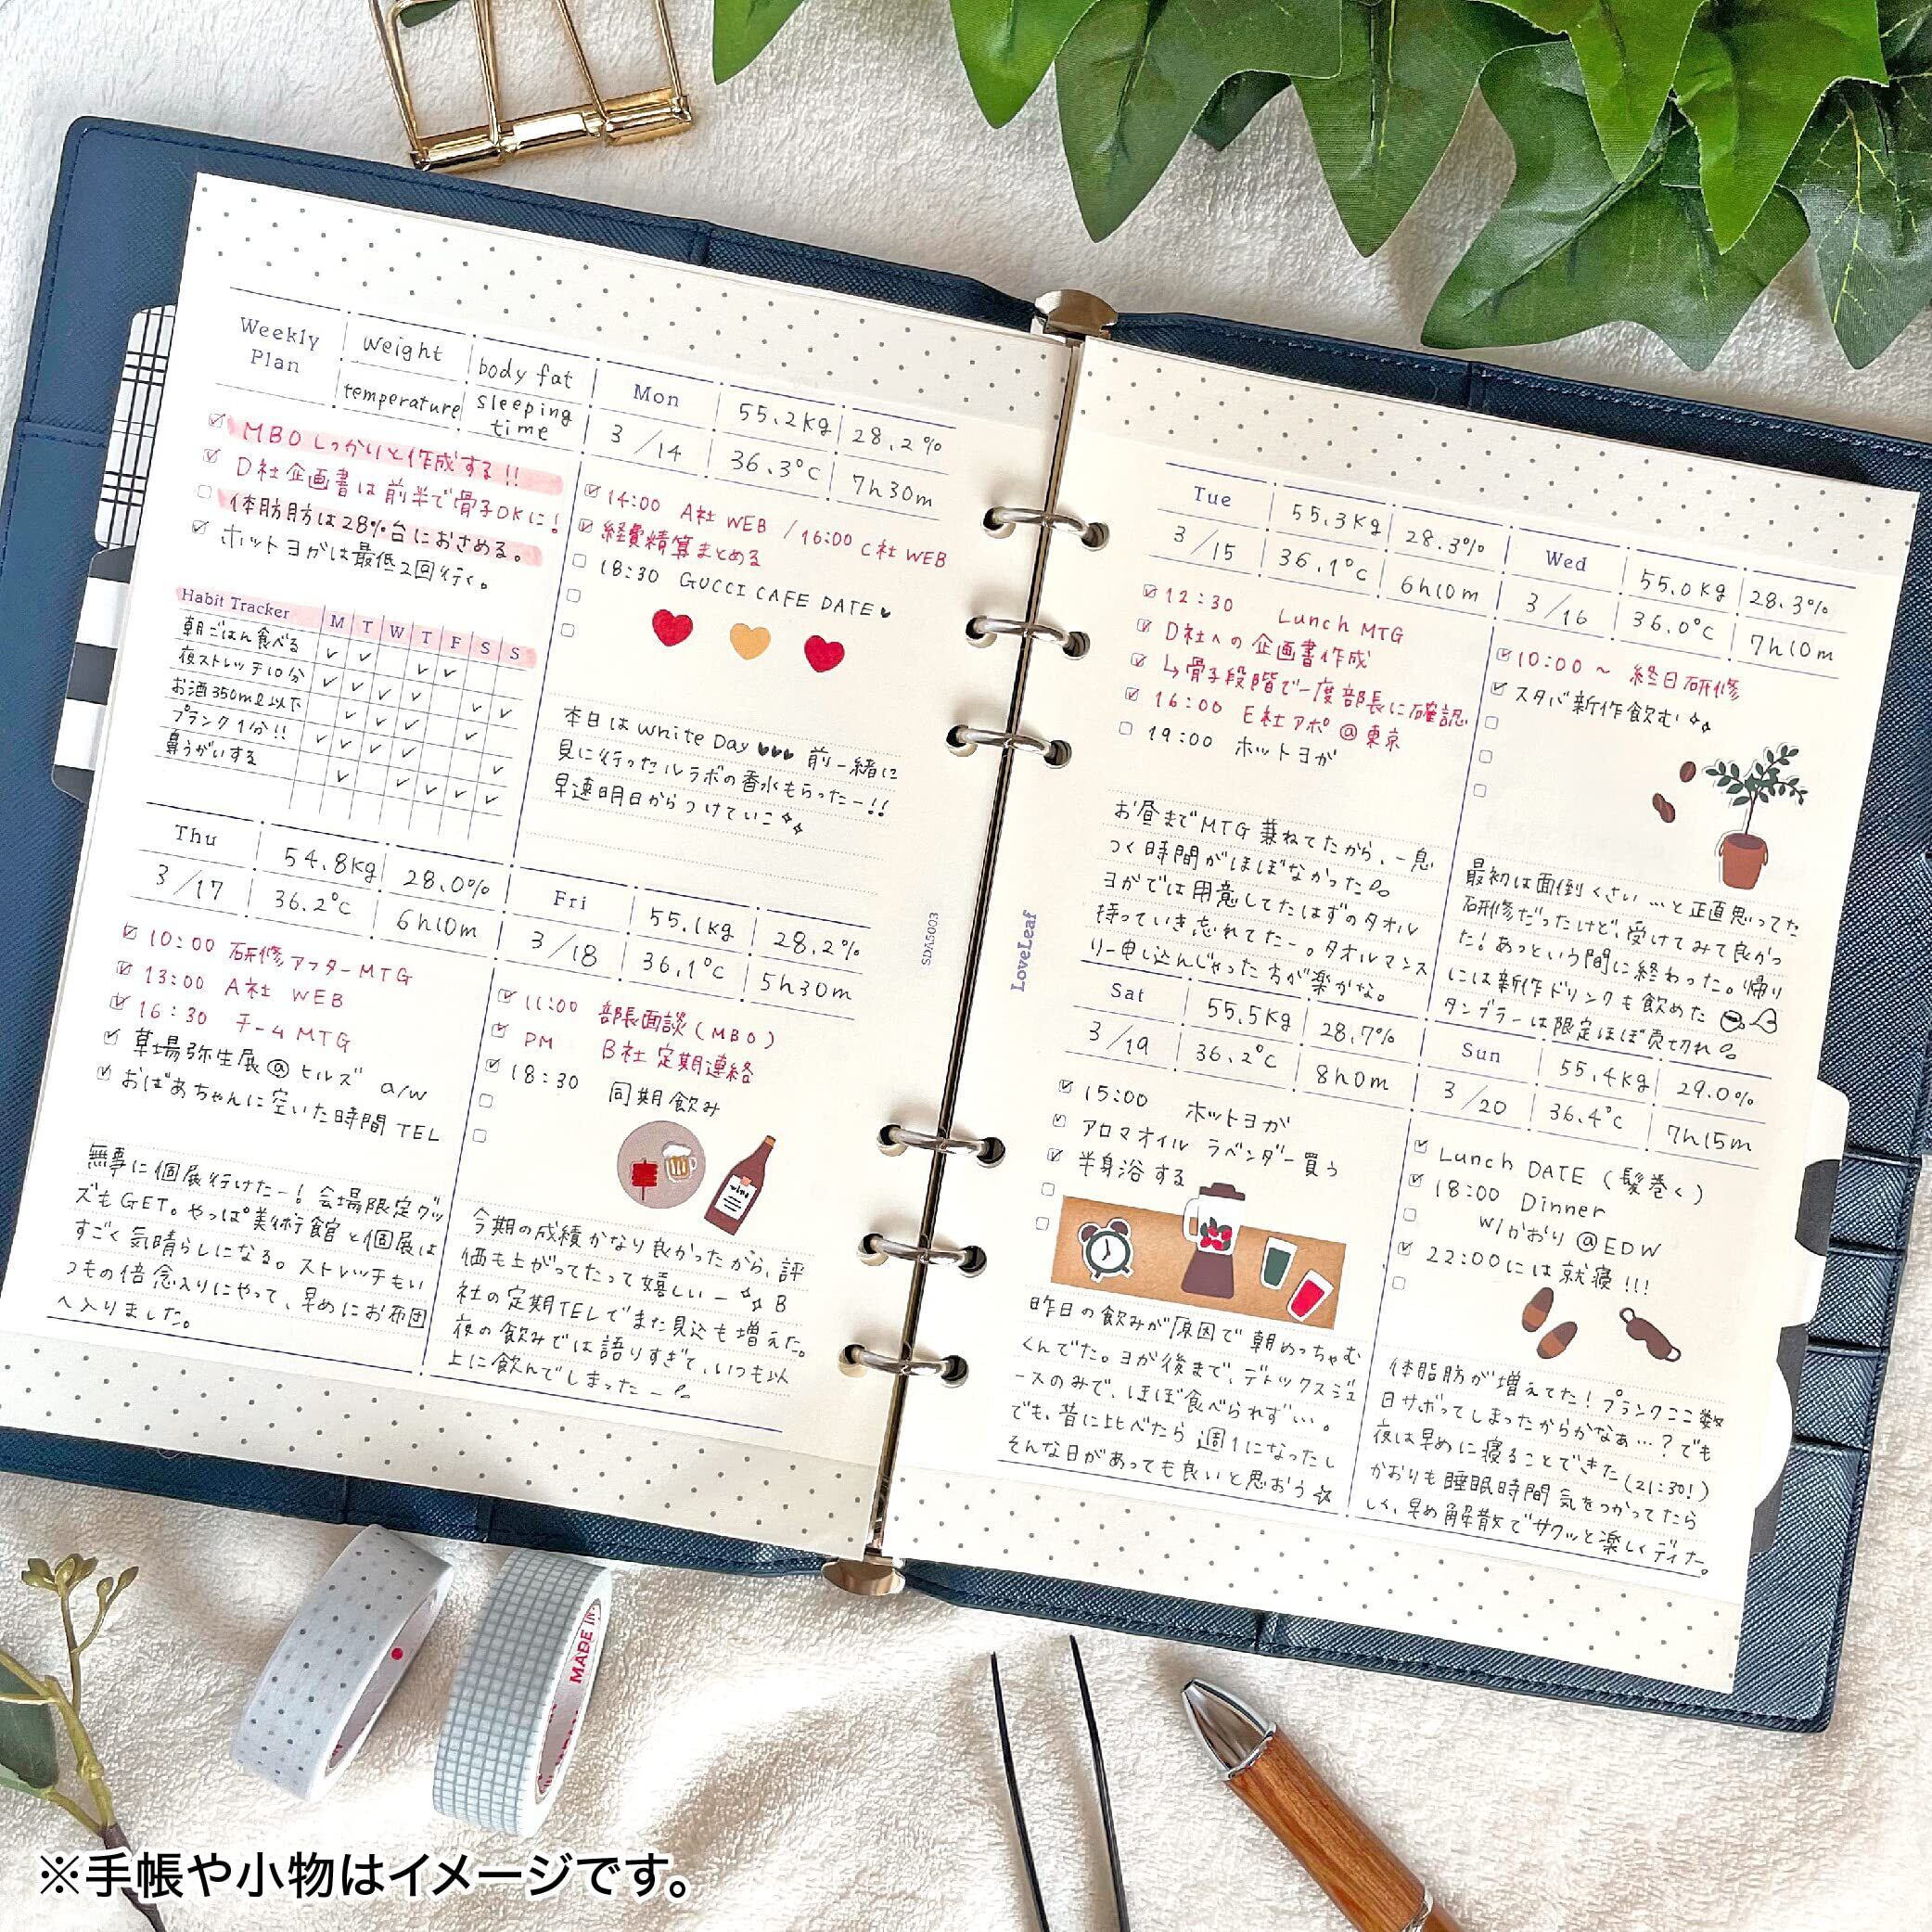 Weekly
Plan
weight
body fat
temperature
sleeping
time
☑ MBOしっかりと作成する!!
☑ D社企画書は前半で骨子OKに!
☐ 体脂肪は28%台におさめる。
☑ ホットヨガは最低2回行く。
Habit Tracker M T W T F S S
朝ごはん食べる
夜ストレッチ10分
お酒350ml以下
プランク1分!!
鼻うがいする
Mon
3/14
55.2kg
28.2%
36.3℃
7h30m
☑ 14:00 A社 WEB / 16:00 C社 WEB
☑ 経費精算まとめる
☐ 18:30 GUCCI CAFE DATE♥
本日は White Day ♥♥♥ 前一緒に
見に行ったルラボの香水もらったー!!
早速明日からつけていこ
Thu
3/17
54.8kg
28.0%
36.2℃
6h10m
☑ 10:00 研修アフターMTG
☑ 13:00 A社 WEB
☑ 16:30 チームMTG
☑ 草場弥生展@ヒルズ a/w
☑ おばあちゃんに空いた時間 TEL
無事に個展行けたー!会場限定グッ
ズもGET。やっぱ美術館と個展は
すごく気晴らしになる。ストレッチもい
つもの倍念入りにやって、早めにお布団
へ入りました。
Fri
3/18
55.1kg
28.2%
36.1℃
5h30m
☑ 11:00 部長面談(MBO)
☑ PM B社定期連絡
☑ 18:30 同期飲み
wine
今期の成績かなり良かったから、評
価も上がってたって嬉しいー B
社の定期TELでまた見込も増えた。
夜の飲みでは語りすぎて、いつも以
上に飲んでしまったー
SDA5003
LoveLeaf
Tue
3/15
55.3kg
28.3%
36.1℃
6h10m
☑ 12:30 Lunch MTG
☑ D社への企画書作成
☑ ↳骨子段階で一度部長に確認
☑ 16:00 E社アポ@東京
☐ 19:00 ホットヨガ
お昼までMTG兼ねてたから、一息
つく時間がほぼなかった
ヨガでは用意してたはずのタオル
持っていき忘れてたー。タオルマンス
リー申し込んじゃった方が楽かな。
Wed
3/16
55.0kg
28.3%
36.0℃
7h10m
☑ 10:00〜 終日研修
☑ スタバ新作飲む
最初は面倒くさい…と正直思ってた
研修だったけど、受けてみて良かっ
た!あっという間に終わった。帰り
には新作ドリンクも飲めた
タンブラーは限定ほぼ売切れ
Sat
3/19
55.5kg
28.7%
36.2℃
8h0m
☑ 15:00 ホットヨガ
☑ アロマオイル ラベンダー買う
☑ 半身浴する
昨日の飲みが原因で朝めっちゃむ
くんでた。ヨガ後まで、デトックスジュ
ースのみで、ほぼ食べられず…。
でも、昔に比べたら週1になったし
そんな日があっても良いと思おう☆
Sun
3/20
55.4kg
29.0%
36.4℃
7h15m
☑ Lunch DATE (髪巻く)
☑ 18:00 Dinner
☐ w/かおり @EDW
☑ 22:00には就寝!!!
体脂肪が増えてた!プランクここ数
日サボってしまったからかなぁ…?でも
夜は早めに寝ることできた(21:30!)
かおりも睡眠時間気をつかってたら
しく、早め解散でサクッと楽しくディナー。
MADE IN
※手帳や小物はイメージです。